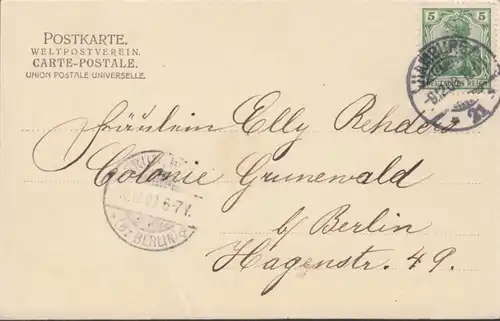 POSTKARTE.
WELTPOSTVEREIN.
CARTE-POSTALE.
UNION POSTALE UNIVERSELLE.
5 5
Fräulein Elly Rehders
Colonie Grunewald
b/ Berlin
Hagenstr. 49.
6-7V.
BERLIN
HAMBURG
21